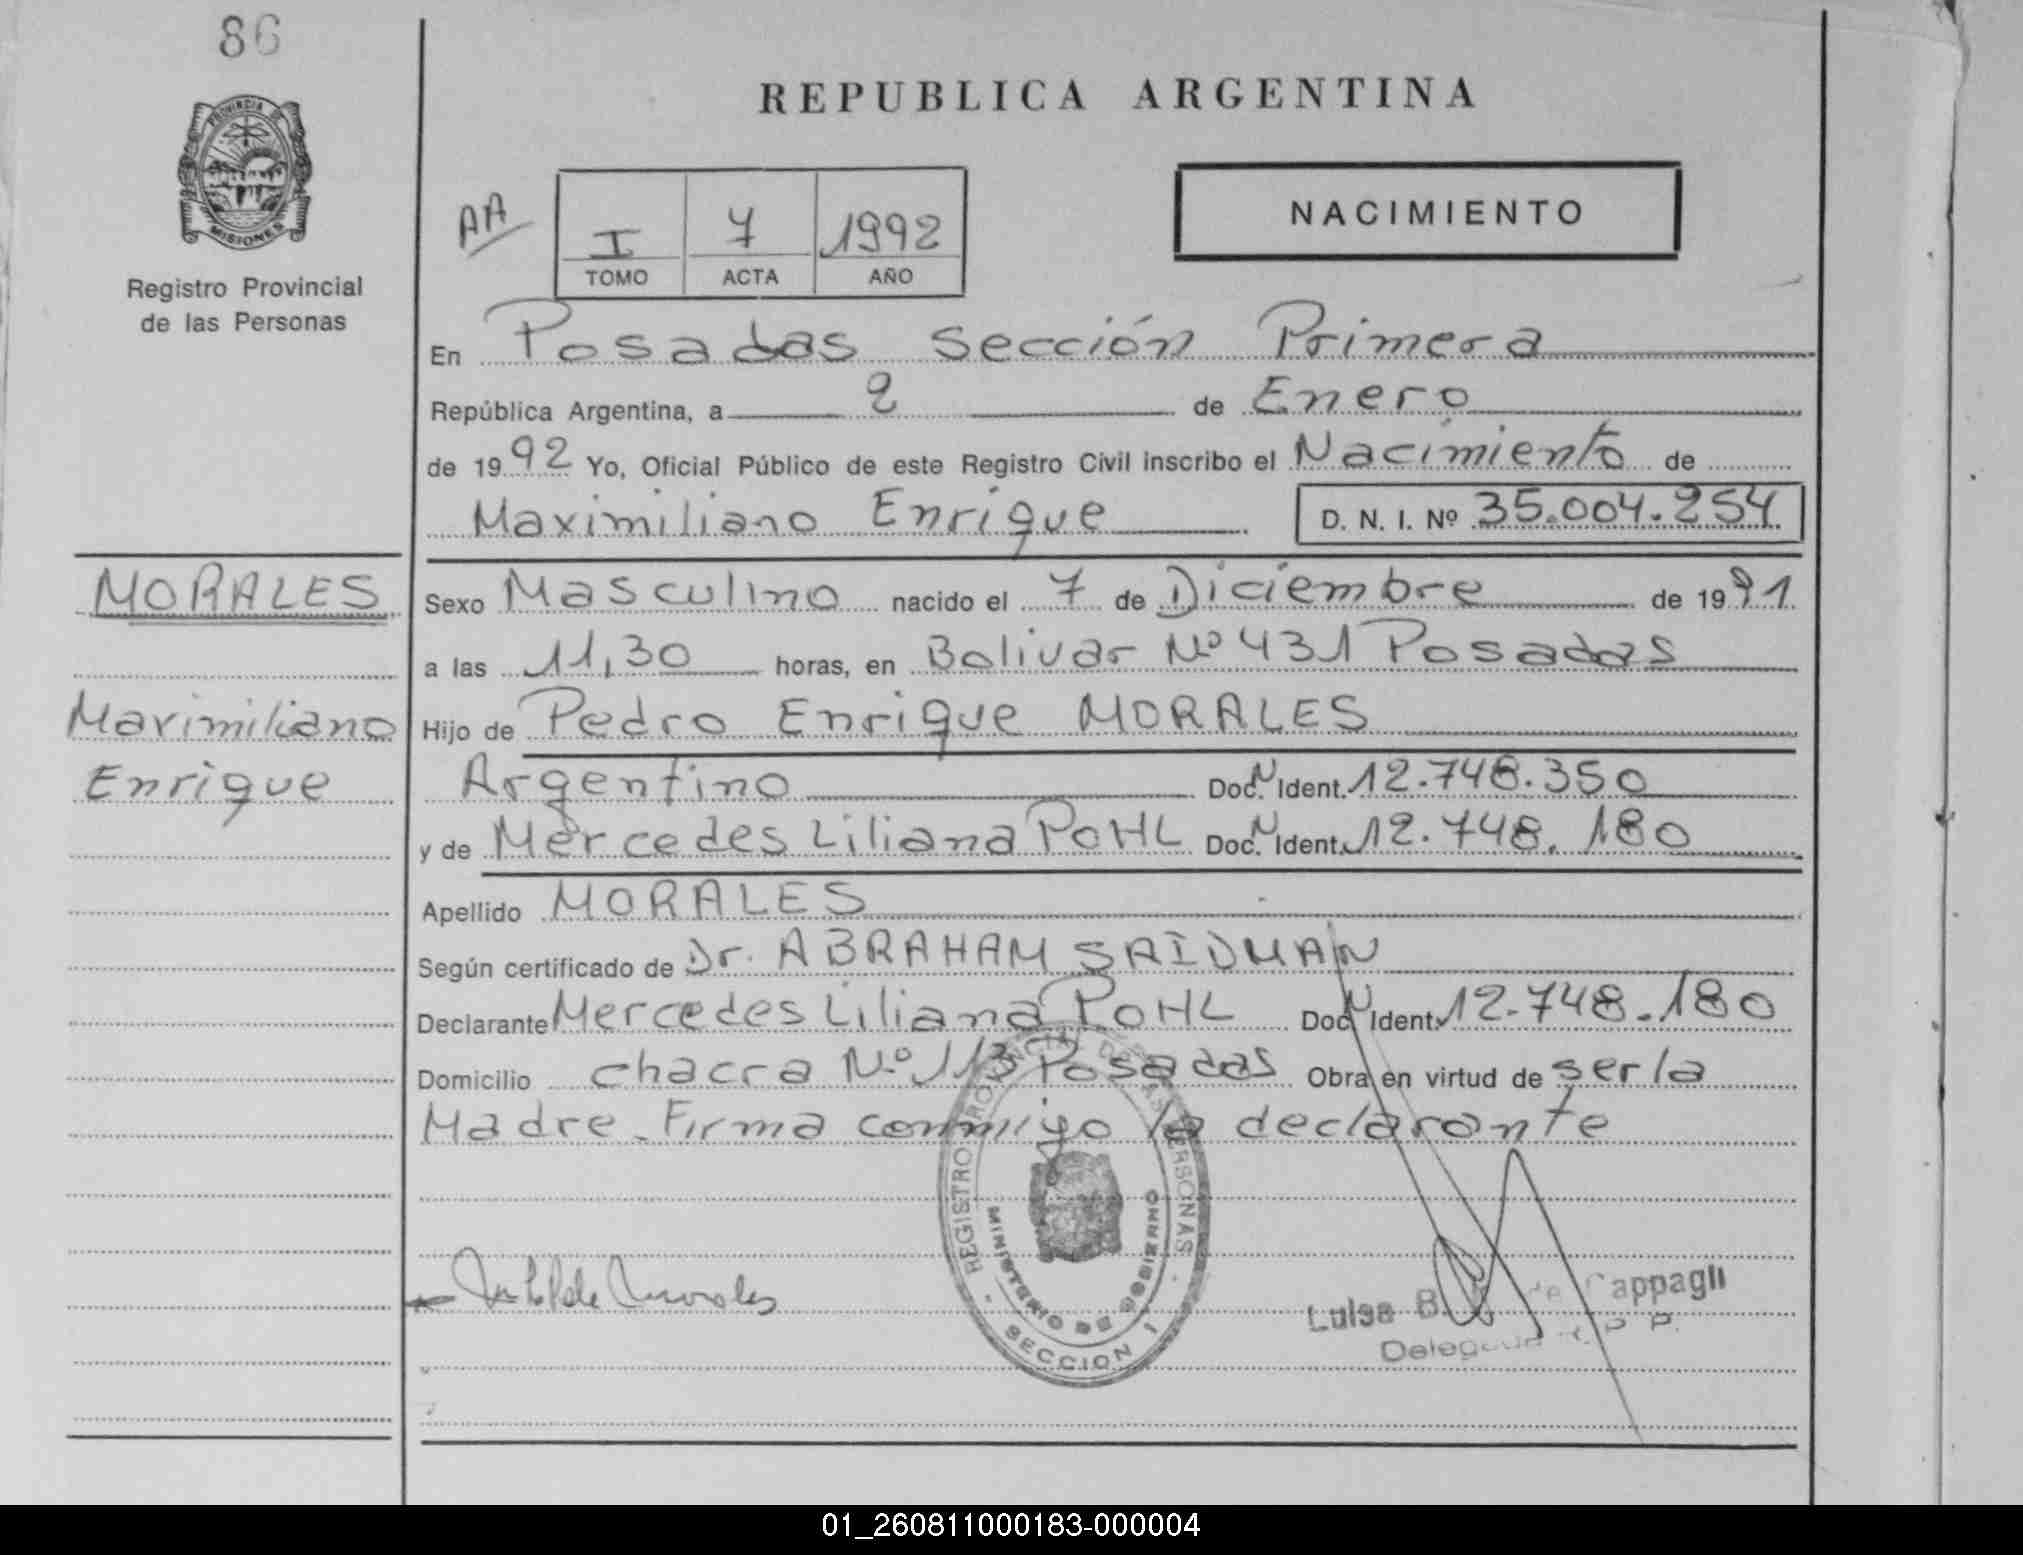 86
REPUBLICA ARGENTINA
PROVINCIA DE
MISIONES
Registro Provincial
de las Personas
AA
I 7 1992
TOMO ACTA AÑO
NACIMIENTO
En Posadas Sección Primera
República Argentina, a 2 de Enero
de 1992 Yo, Oficial Público de este Registro Civil inscribo el Nacimiento de
Maximiliano Enrique D. N. I. Nº 35.004.254
MORALES
Maximiliano
Enrique
Sexo Masculino nacido el 7 de Diciembre de 1991
a las 11,30 horas, en Bolivar Nº 431 Posadas
Hijo de Pedro Enrique MORALES
Argentino Doc. N Ident. 12.748.350
y de Mercedes Liliana POHL Doc. N Ident. 12.748.180
Apellido MORALES
Según certificado de Dr. ABRAHAM SAIDMAN
Declarante Mercedes Liliana POHL Doc. N Ident. 12.748.180
Domicilio chacra Nº 113 Posadas Obra en virtud de ser la
Madre. Firma conmigo la declarante
REGISTRO PROVINCIAL DE LAS PERSONAS
MINISTERIO DE GOBIERNO
SECCION 1
de Morales
Luisa B. de Cappagli
Delegada R. P. P.
01_260811000183-000004